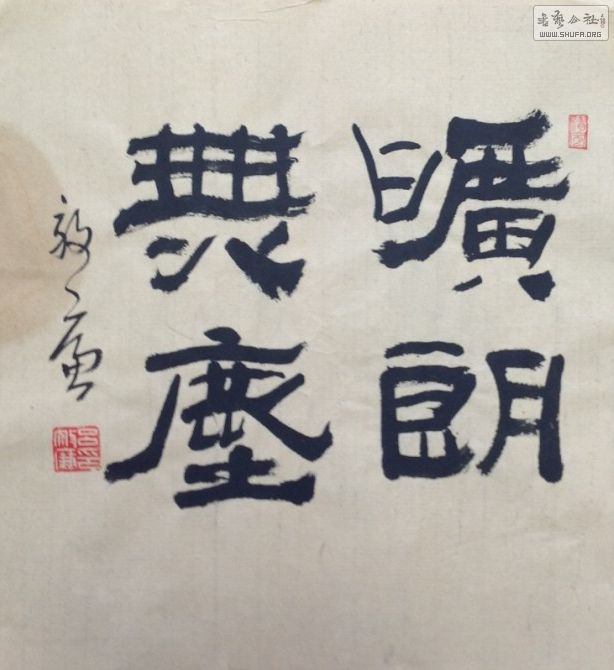 曠朗
無塵
書藝公社
WWW.SHUFA.ORG